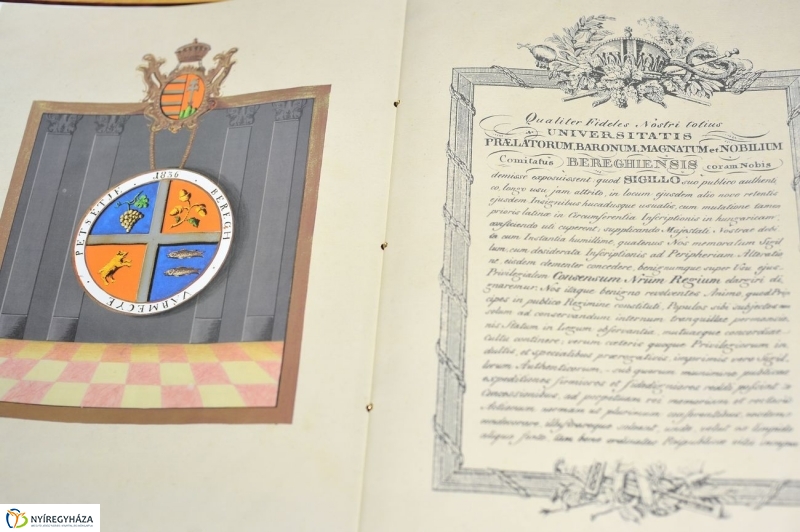 1836 BEREGH VÁRMEGYE PETSÉTJE
Qualiter Fideles Nostri totius
UNIVERSITATIS
PRÆLATORUM, BARONUM, MAGNATUM et NOBILIUM
Comitatus BEREGHIENSIS coram Nobis
demisse exposuissent, quod SIGILLO suo publico authenti
co, longo usu jam attrito, in locum ejusdem alio novo retentis
ejusdem Insignibus hucadusque usualis, cum mutatione tamen
prioris latinæ in Circumferentia Inscriptionis in hungaricam,
uti cuperent, supplicando Majestati Nostræ debi
ta cum Instantia humillime, quatenus Nos memoratum Sigil
lum cum desiderata Inscriptionis ad Peripheriam Alteratio
ne, eisdem clementer concedere, benignumque super Usu ejus
Privilegialem Consensum Nrum Regium dargiri di
gnaremur: Nos itaque benigno revolventes Animo, quod Prin
cipes in publico Regimine constituti, Populos sibi subjectos non
solum ad conservandum internum tranquillæ permansio
nis Statum in Legum observantia, mutuaque concordiæ
Cultu continere, verum cæteris quoque Privilegiorum in
dultis, et specialibus prærogativis imprimis vero Sigil
lorum Authenticorum, sub quorum munimine publicæ
expeditiones firmiores et fide digniores reddi possint
Concessionibus, ad perpetuam rei memoriam et
Actionum normam ut plurimum conferentibus,
soleant, unde velut ex limpido
fonte, tam bene ordinatæ Reipublicæ
NYÍREGYHÁZA